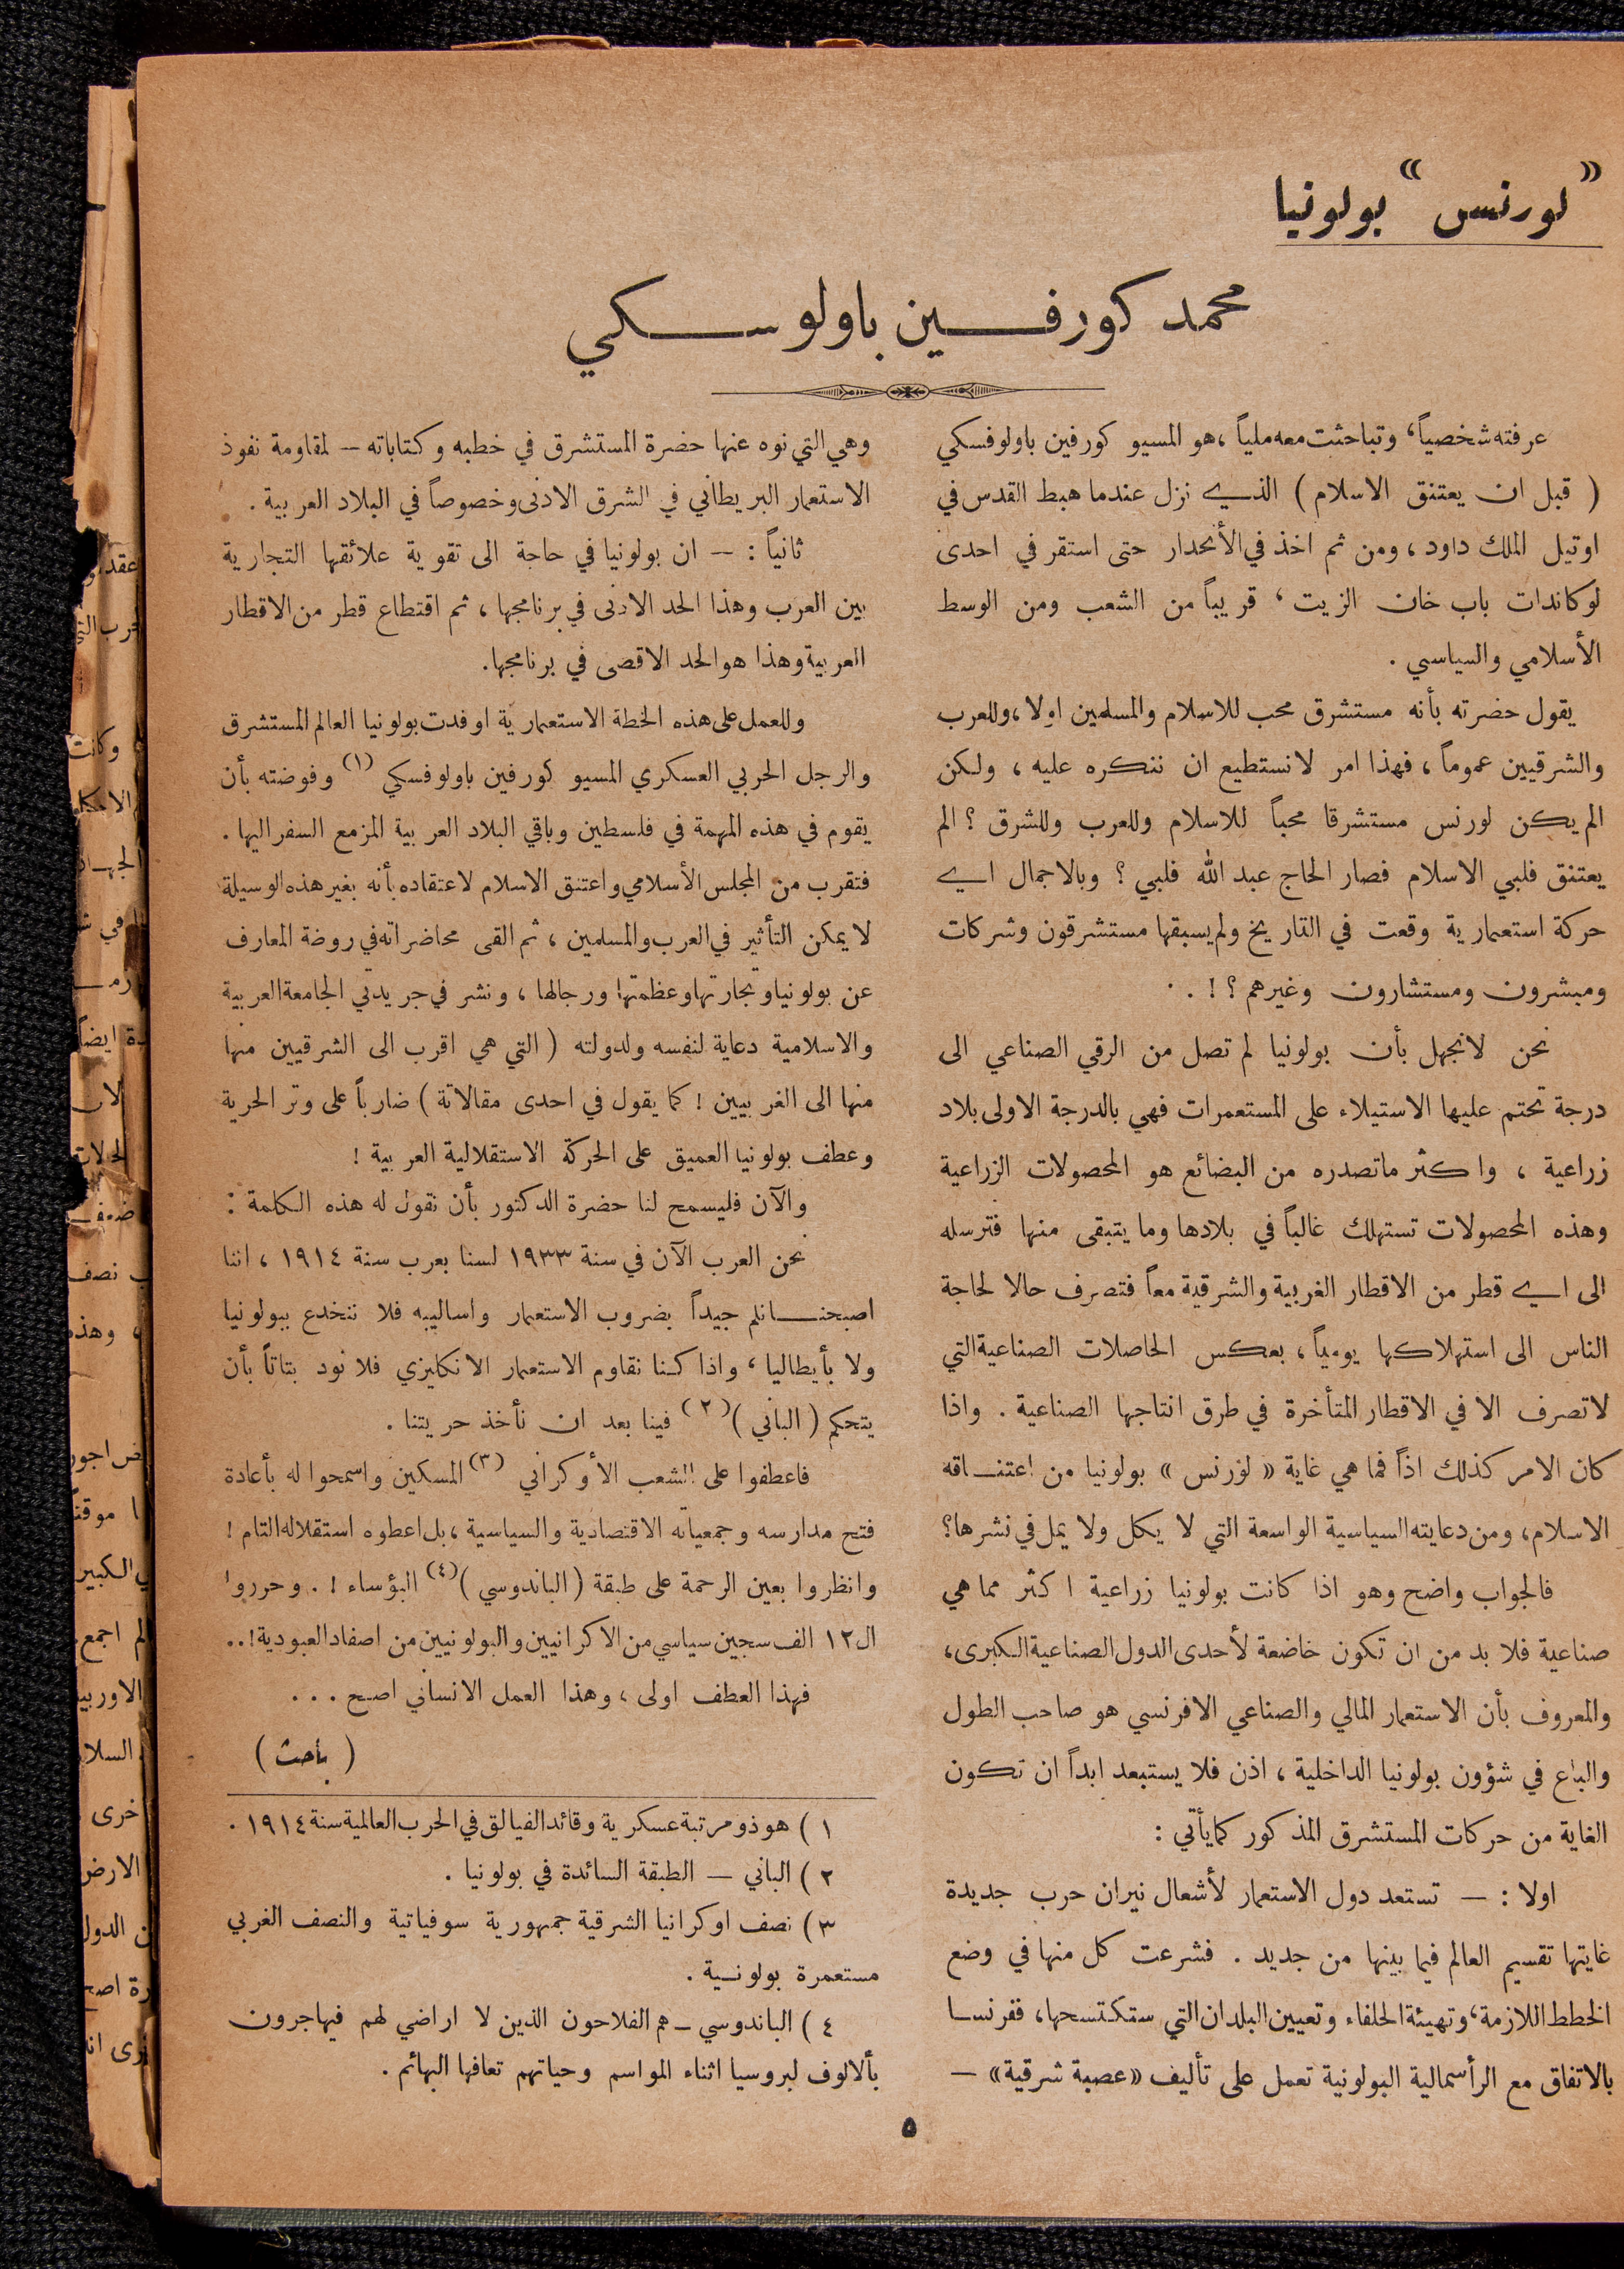 «لورنس» بولونيا
محمد كورفين باولوسكي
عرفته شخصياً، وتباحثت معه ملياً، هو المسيو كورفين باولوفسكي
( قبل ان يعتنق الاسلام ) الذي نزل عندما هبط القدس في
اوتيل الملك داود، ومن ثم اخذ في الأنحدار حتى استقر في احدى
لوكاندات باب خان الزيت، قريباً من الشعب ومن الوسط
الأسلامي والسياسي .
يقول حضرته بأنه مستشرق محب للاسلام والمسلمين اولا، وللعرب
والشرقيين عموماً، فهذا امر لا نستطيع ان ننكره عليه، ولكن
الم يكن لورنس مستشرقا محباً للاسلام وللعرب وللشرق ؟ الم
يعتنق فلبي الاسلام فصار الحاج عبد الله فلبي ؟ وبالاجمال اي
حركة استعمارية وقعت في التاريخ ولم يسبقها مستشرقون وشركات
ومبشرون ومستشارون وغيرهم ؟ ! . .
نحن لانجهل بأن بولونيا لم تصل من الرقي الصناعي الى
درجة تحتم عليها الاستيلاء على المستعمرات فهي بالدرجة الاولى بلاد
زراعية ، واكثر ماتصدره من البضائع هو المحصولات الزراعية
وهذه المحصولات تستهلك غالباً في بلادها وما يتبقى منها فترسله
الى اي قطر من الاقطار الغربية والشرقية معاً فتصرف حالا لحاجة
الناس الى استهلاكها يومياً، بعكس الحاصلات الصناعية التي
لاتصرف الا في الاقطار المتأخرة في طرق انتاجها الصناعية . واذا
كان الامر كذلك اذاً فما هي غاية « لورنس » بولونيا من اعتناقه
الاسلام، ومن دعايته السياسية الواسعة التي لا يكل ولا يمل في نشرها؟
فالجواب واضح وهو اذا كانت بولونيا زراعية اكثر مما هي
صناعية فلا بد من ان تكون خاضعة لأحدى الدول الصناعية الكبرى،
والمعروف بأن الاستعمار المالي والصناعي الافرنسي هو صاحب الطول
والباع في شؤون بولونيا الداخلية ، اذن فلا يستبعد ابداً ان تكون
الغاية من حركات المستشرق المذكور كمايأتي :
اولا : — تستعد دول الاستعمار لأشعال نيران حرب جديدة
غايتها تقسيم العالم فيما بينها من جديد . فشرعت كل منها في وضع
الخطط اللازمة، وتهيئة الحلفاء وتعيين البلدان التي ستكتسحها، ففرنسا
بالاتفاق مع الرأسمالية البولونية تعمل على تأليف «عصبة شرقية» —
وهي التي نوه عنها حضرة المستشرق في خطبه وكتاباته — لمقاومة نفوذ
الاستعمار البريطاني في الشرق الادنى وخصوصاً في البلاد العربية .
ثانياً : — ان بولونيا في حاجة الى تقوية علائقها التجارية
بين العرب وهذا الحد الادنى في برنامجها، ثم اقتطاع قطر من الاقطار
العربية وهذا هو الحد الاقصى في برنامجها.
وللعمل على هذه الخطة الاستعمارية اوفدت بولونيا العالم المستشرق
والرجل الحربي العسكري المسيو كورفين باولوفسكي (١) وفوضته بأن
يقوم في هذه المهمة في فلسطين وباقي البلاد العربية المزمع السفر اليها .
فتقرب من المجلس الأسلامي واعتنق الاسلام لاعتقاده بأنه بغير هذه الوسيلة
لا يمكن التأثير في العرب والمسلمين ، ثم القى محاضراته في روضة المعارف
عن بولونيا وتجارتها وعظمتها ورجالها ، ونشر في جريدتي الجامعة العربية
والاسلامية دعاية لنفسه ولدولته ( التي هي اقرب الى الشرقيين منها
منها الى الغربيين ! كما يقول في احدى مقالاتة ) ضارباً على وتر الحرية
وعطف بولونيا العميق على الحركة الاستقلالية العربية !
والآن فليسمح لنا حضرة الدكتور بأن نقول له هذه الكلمة :
نحن العرب الآن في سنة ١٩٣٣ لسنا بعرب سنة ١٩١٤ ، اننا
اصبحنا نلم جيداً بضروب الاستعمار واساليبه فلا ننخدع ببولونيا
ولا بأيطاليا، واذا كنا نقاوم الاستعمار الانكليزي فلا نود بتاتاً بأن
يتحكم ( الباني ) (٢) فينا بعد ان نأخذ حريتنا .
فاعطفوا على الشعب الأوكراني (٣) المسكين واسمحوا له بأعادة
فتح مدارسه وجمعياته الاقتصادية والسياسية، بل اعطوه استقلاله التام !
وانظروا بعين الرحمة على طبقة ( الباندوسي ) (٤) البؤساء ! . وحرروا
ال ١٢ الف سجين سياسي من الاكرانيين والبولونيين من اصفاد العبودية ! ..
فهذا العطف اولى ، وهذا العمل الانساني اصح . . .
( باحث )
١ ) هو ذو مرتبة عسكرية وقائد الفيالق في الحرب العالمية سنة ١٩١٤ .
٢ ) الباني — الطبقة السائدة في بولونيا .
٣ ) نصف اوكرانيا الشرقية جمهورية سوفياتية والنصف الغربي
مستعمرة بولونية .
٤ ) الباندوسي — هم الفلاحون الذين لا اراضي لهم فيهاجرون
بألالوف لبروسيا اثناء المواسم وحياتهم تعافها البهائم .
٥